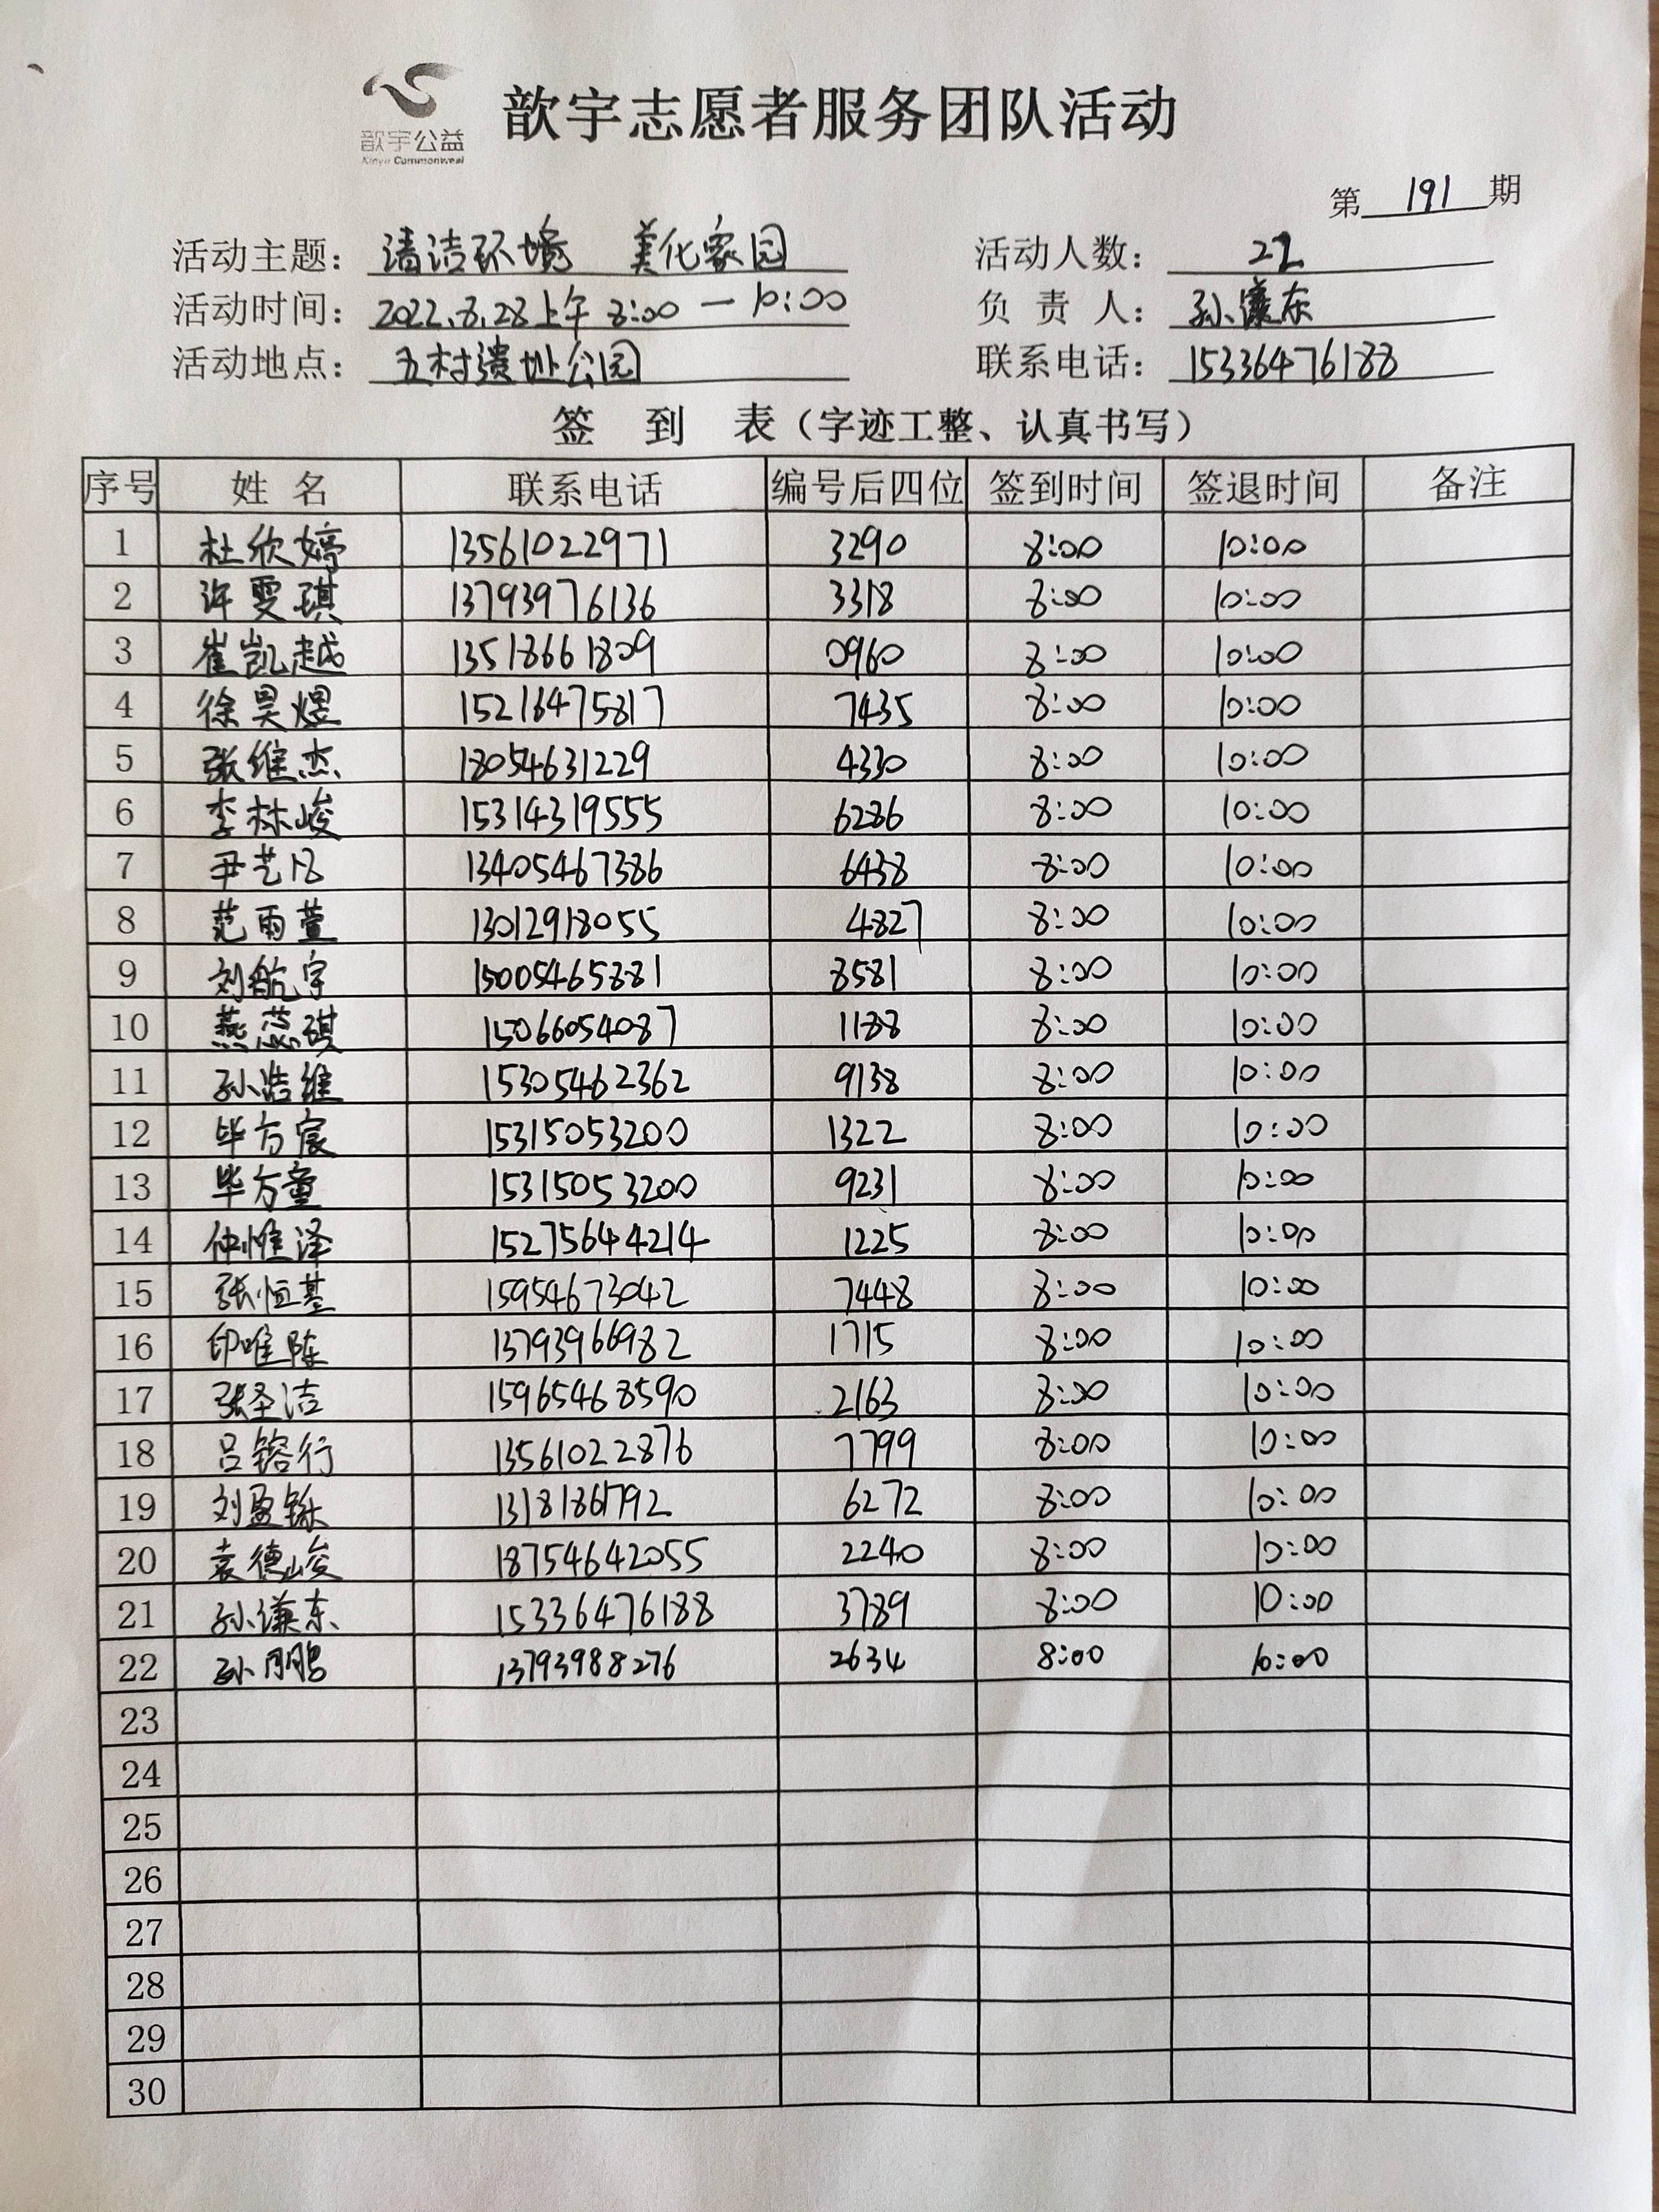 歆宇公益
Xinyu Commonweal
歆宇志愿者服务团队活动
第 191 期
活动主题： 清洁环境 美化家园 活动人数： 22
活动时间： 2022.8.28上午 8:00 — 10:00 负责人： 孙谦东
活动地点： 五村遗址公园 联系电话： 15336476188
签 到 表（字迹工整、认真书写）
序号 姓名 联系电话 编号后四位 签到时间 签退时间 备注
1 杜欣婷 13561022971 3290 8:00 10:00
2 许雯琪 13793976136 3318 8:00 10:00
3 崔凯越 13518661809 0960 8:00 10:00
4 徐昊煜 15216475817 7435 8:00 10:00
5 张维杰 18054631229 4330 8:00 10:00
6 李林峻 15314319555 6286 8:00 10:00
7 尹艺凡 13405467386 6438 8:00 10:00
8 范雨萱 13012918055 4827 8:00 10:00
9 刘航宇 15005465881 8581 8:00 10:00
10 燕蕊琪 15066054087 1188 8:00 10:00
11 孙浩维 15305462362 9138 8:00 10:00
12 毕方宸 15315053200 1322 8:00 10:00
13 毕方童 15315053200 9231 8:00 10:00
14 仲惟泽 15275644214 1225 8:00 10:00
15 张恒基 15954673042 7448 8:00 10:00
16 印唯陈 13793966982 1715 8:00 10:00
17 张圣洁 15965468590 2163 8:00 10:00
18 吕镕行 13561022876 7799 8:00 10:00
19 刘盈 13181861792 6272 8:00 10:00
20 袁德峻 18754642055 2240 8:00 10:00
21 孙谦东 15336476188 3789 8:00 10:00
22 孙月鹏 13793988276 2634 8:00 10:00
23
24
25
26
27
28
29
30